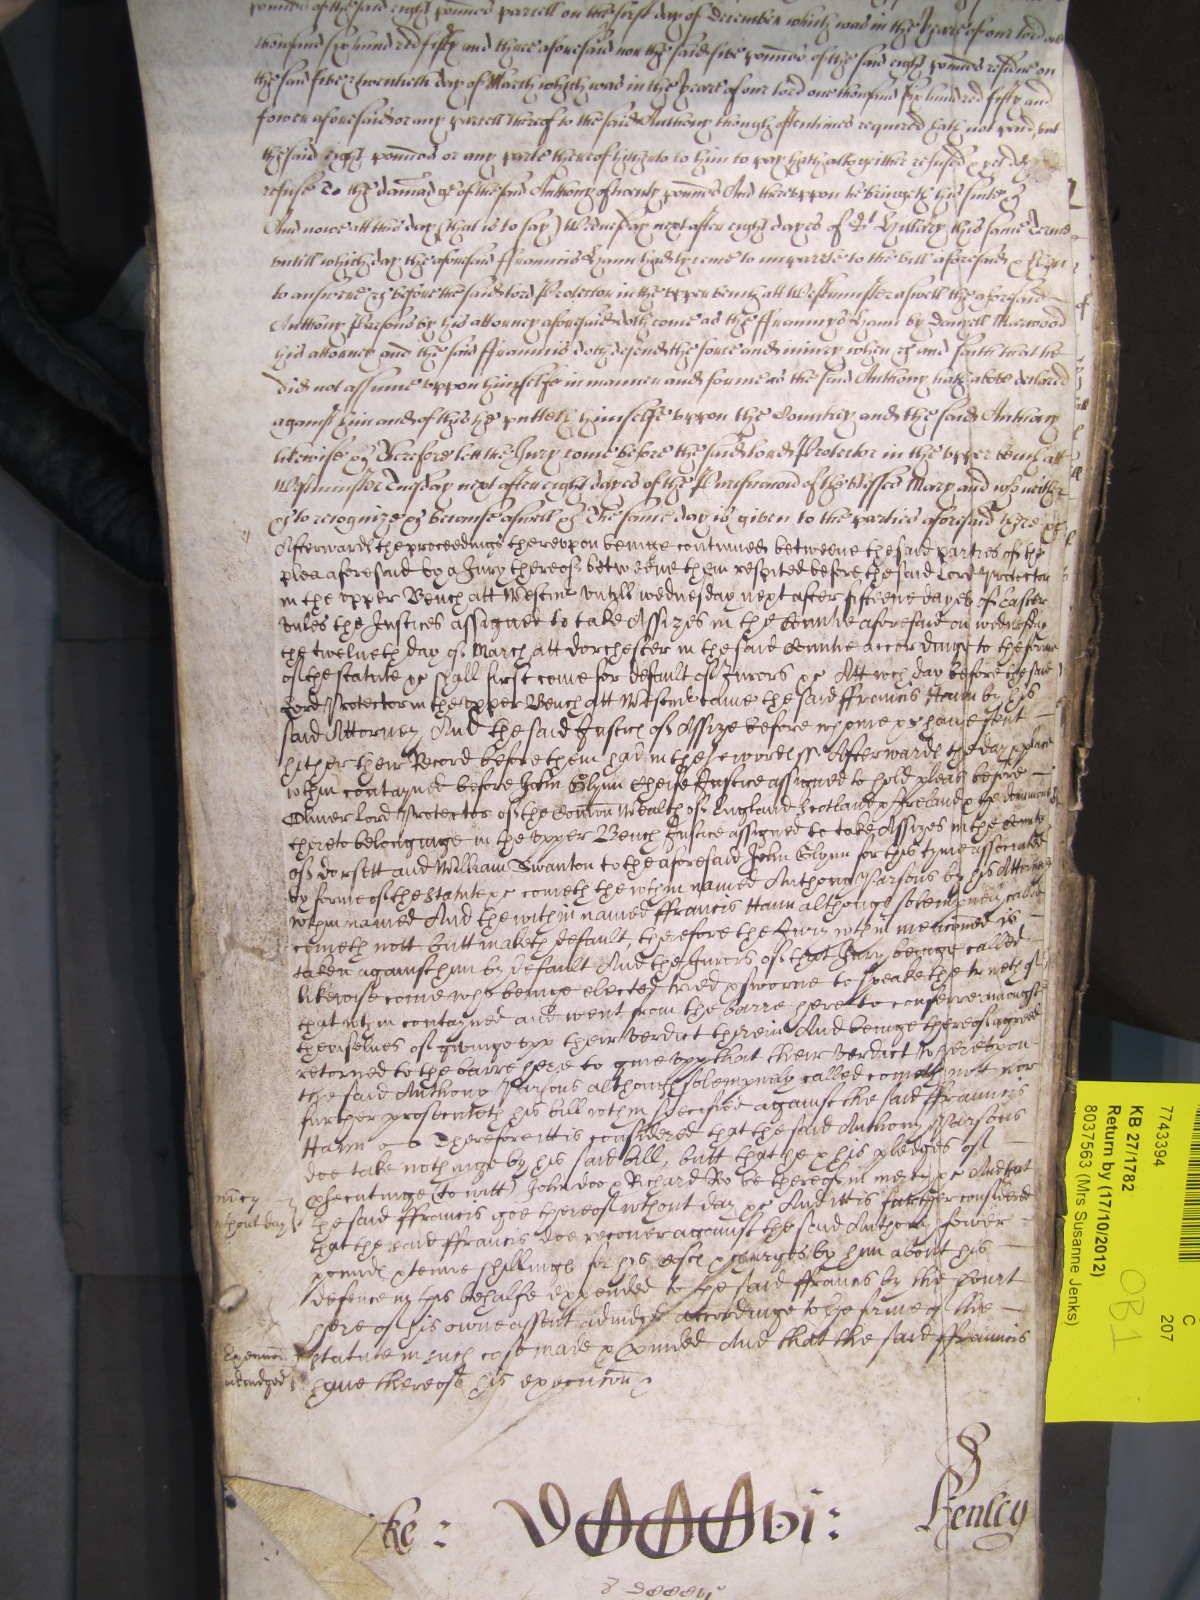 pounds of the said eight pounds parcell on the first day of December which was in the yeare of our lord one
thousand six hundred fifty and three aforesaid nor the said five pounds of the said eight pounds residue on
the said five & twentieth day of March which was in the yeare of our lord one thousand six hundred fifty and
fower aforesaid or any parcell thereof to the said Anthony though oftentimes required hath not payd, but
the said eight pounds or any parte thereof hitherto to him to pay hath altogether refused & yet doth
refuse To the damadge of the said Anthony of twenty pounds And thereuppon he bringeth his suite &c
And nowe att this day (that is to say) Wednesday next after eight dayes of St Hillary this same Terme
untill which day the aforesaid Ffrancis Hann had lycence to imparle to the bill aforesaid &
to answere &c before the said lord Protector in the upper bench att Westminster aswell the aforesaid
Anthony Parsons by his attorney aforesaid doth come as the Ffrancys Hann by Danyell Marwood
his attorney and the said Ffrancis doth defend the force and iniury when &c and saith that he
did not assume uppon himselfe in manner and forme as the said Anthony hath above declared
against him and of this he putteth himselfe uppon the Countrey and the said Anthony
likewise &c Therefore lett the Jury come before the said lord Protector in the upper bench att
Westminster Tuesday next after eight dayes of the Purificacon of the blessed Mary and who neither
&c to recognize &c because aswell &c The same day is given to the parties aforesaid there &c
Afterwards the proceedings thereupon beinge continued betweene the said parties of the
plea aforesaid by a Jury thereof betweene them respited before the said Lord Protector
in the upper Bench att Westmr untill Wednesday next after fifteene dayes of Easter
unles the Justices assigned to take Assizes in the Countie aforesaid on Wednesday
the twelveth day of March att Dorchester in the said Countie accordinge to the forme
of the statute &c shall first come for default of Jurors &c Att wch day before the said
Lord Protector in the upper Bench att Westmr came the said Ffrancis Hann by his
said Attorney And the said Justices of Assize before whome &c have sent
hither their Record before them had in these words ss Afterwards the day & place
wthin contayned before John Glynn Cheife Justice assigned to hold pleas before
Oliver Lord Protector of the Common Wealth of England Scotland & Ireland & the dominions
thereto belonginge in the upper Bench Justice assigned to take Assizes in the County
of Dorsett and William Swanton to the aforesaid John Glynn for this tyme associated
by forme of the statute &c cometh the wthin named Anthony Parsons by his Attorney
wthin named And the within named Ffrancis Hann althouge solempnely called
cometh nott butt maketh default, therefore the Jury wthin mencioned is
taken against him by default And the Jurors of that Jury beinge called
likewise come who beinge elected tried & sworne to speake the trueth of
that wthin contayned and went from the barre here to conferre amongst
themselves of givinge upp their Verdict therein And beinge thereof agreed
retorned to the barre here to give upp that their Verdict Whereupon
the said Anthony Parsons although solempnely called cometh nott nor
further prosecuteth his bill wthin specified against the said Ffrancis
Hann Therefore itt is considered that the said Anthony Parsons
doe take nothinge by his said bill, butt that he & his pledges of
mercy
p'secutinge (to witt) John Doo & Richard Roo be thereof in mercy &c And that
wthout day
the said Ffrancis goe thereof wthout day &c And itt is further considered
that the said Ffrancis doe recover against the said Anthony fower
pounds & tenne shillings for his costs & charges by him about his
defence in this behalfe expended to the said Ffrancis by the Court
here of his owne assent adiudged accordinge to the forme of the
statute in such case made & p'vided And that the said Ffrancis
have thereof his execution &c
Henley
KB 27/1782
Return by (17/10/2012)
8037563 (Mrs Susanne Jenks)
7743394
C
207
OB1